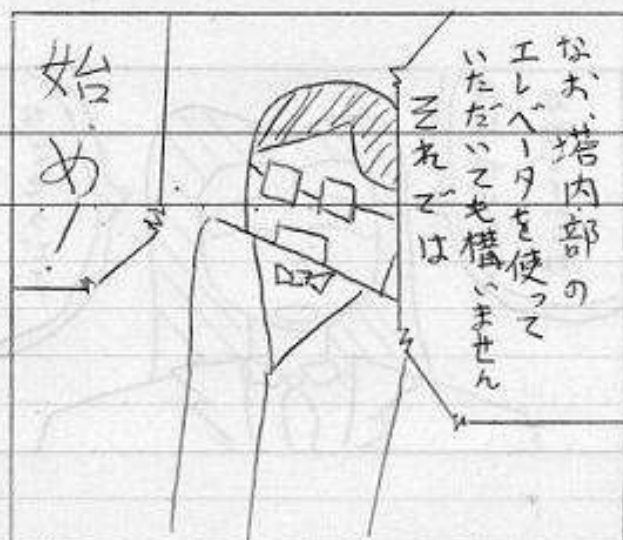 なお、塔内部の
エレベータを使って
いただいても構いません
それでは
始め!